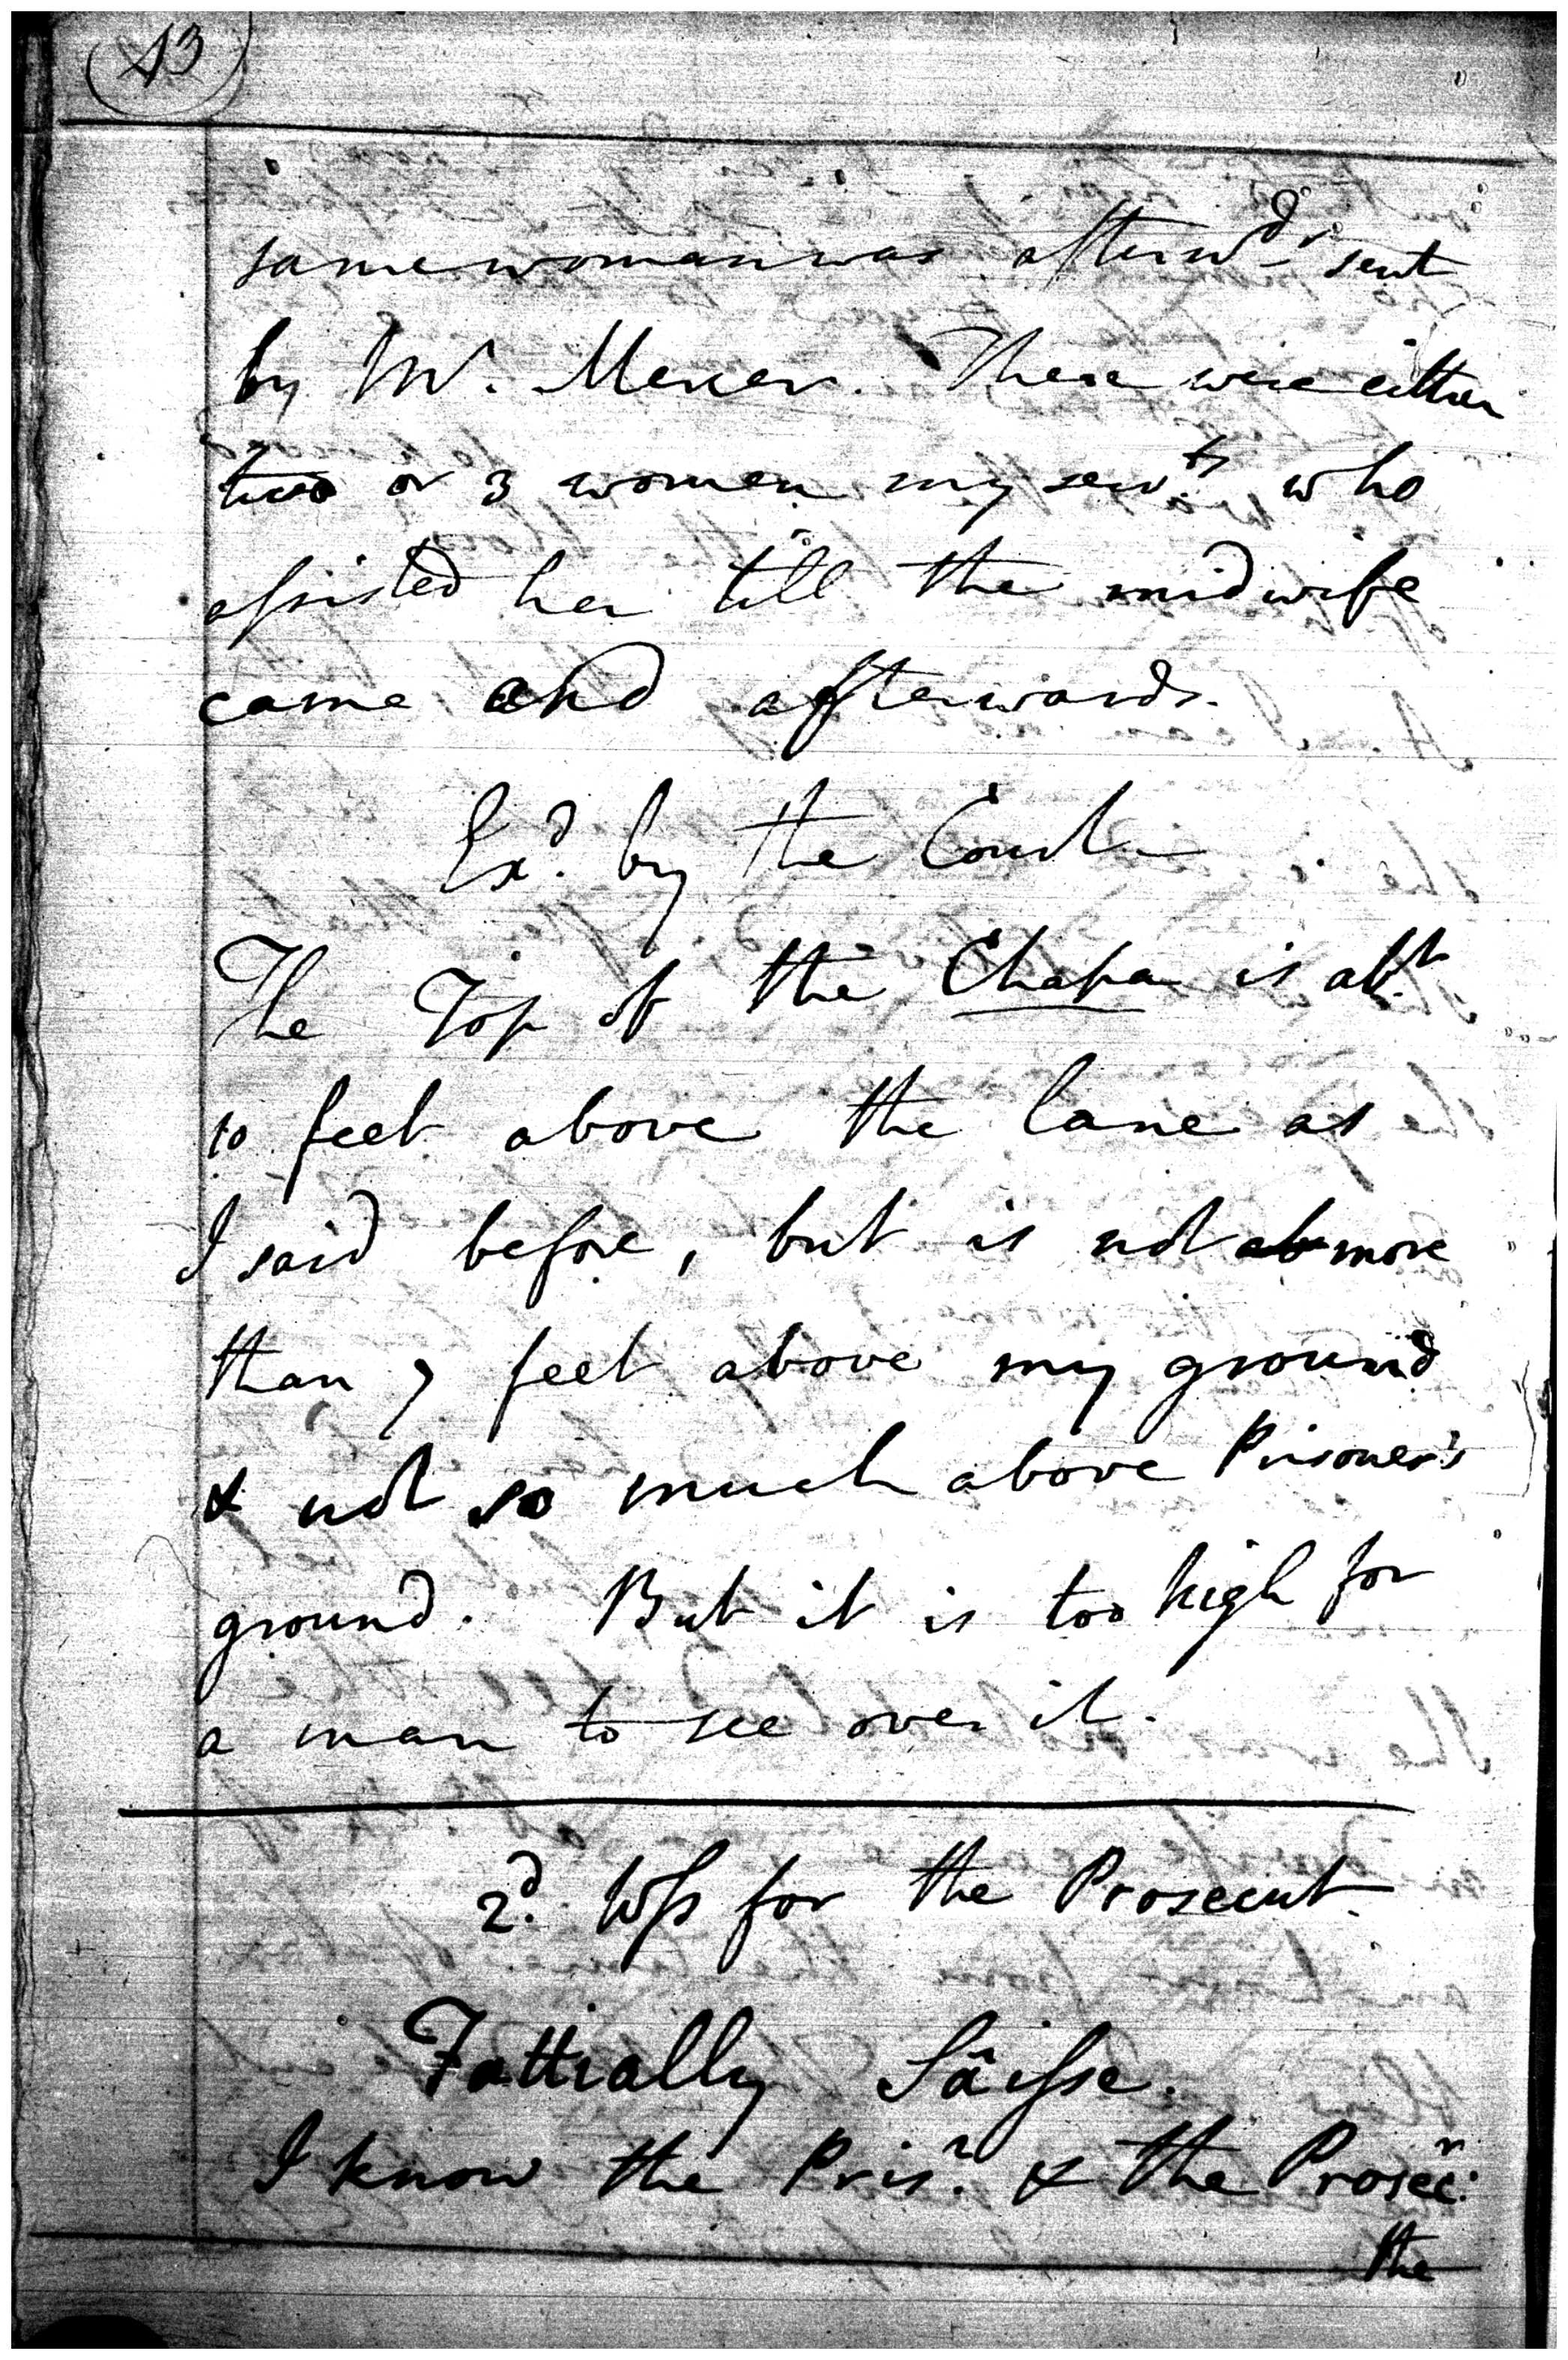 43
same woman was afterwds. sent
by Mr. Mexer. There were either
two or 3 women my servts. who
assisted her till the midwife
came and afterwards.
Exd. by the Court
The Top of the Chapa is abt.
10 feet above the lane as
I said before, but is not more
than 7 feet above my ground
& not so much above Prisoner's
ground. But it is too high for
a man to see over it.
2d. Wss for the Prosecut.
Fattially Sâisse.
I know the Prisr. & the Prosecr.
the